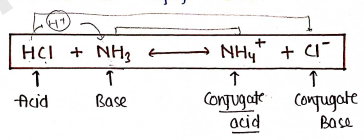 H⁺
HCl + NH₃ ⟷ NH₄⁺ + Cl⁻
Acid Base Conjugate acid Conjugate Base